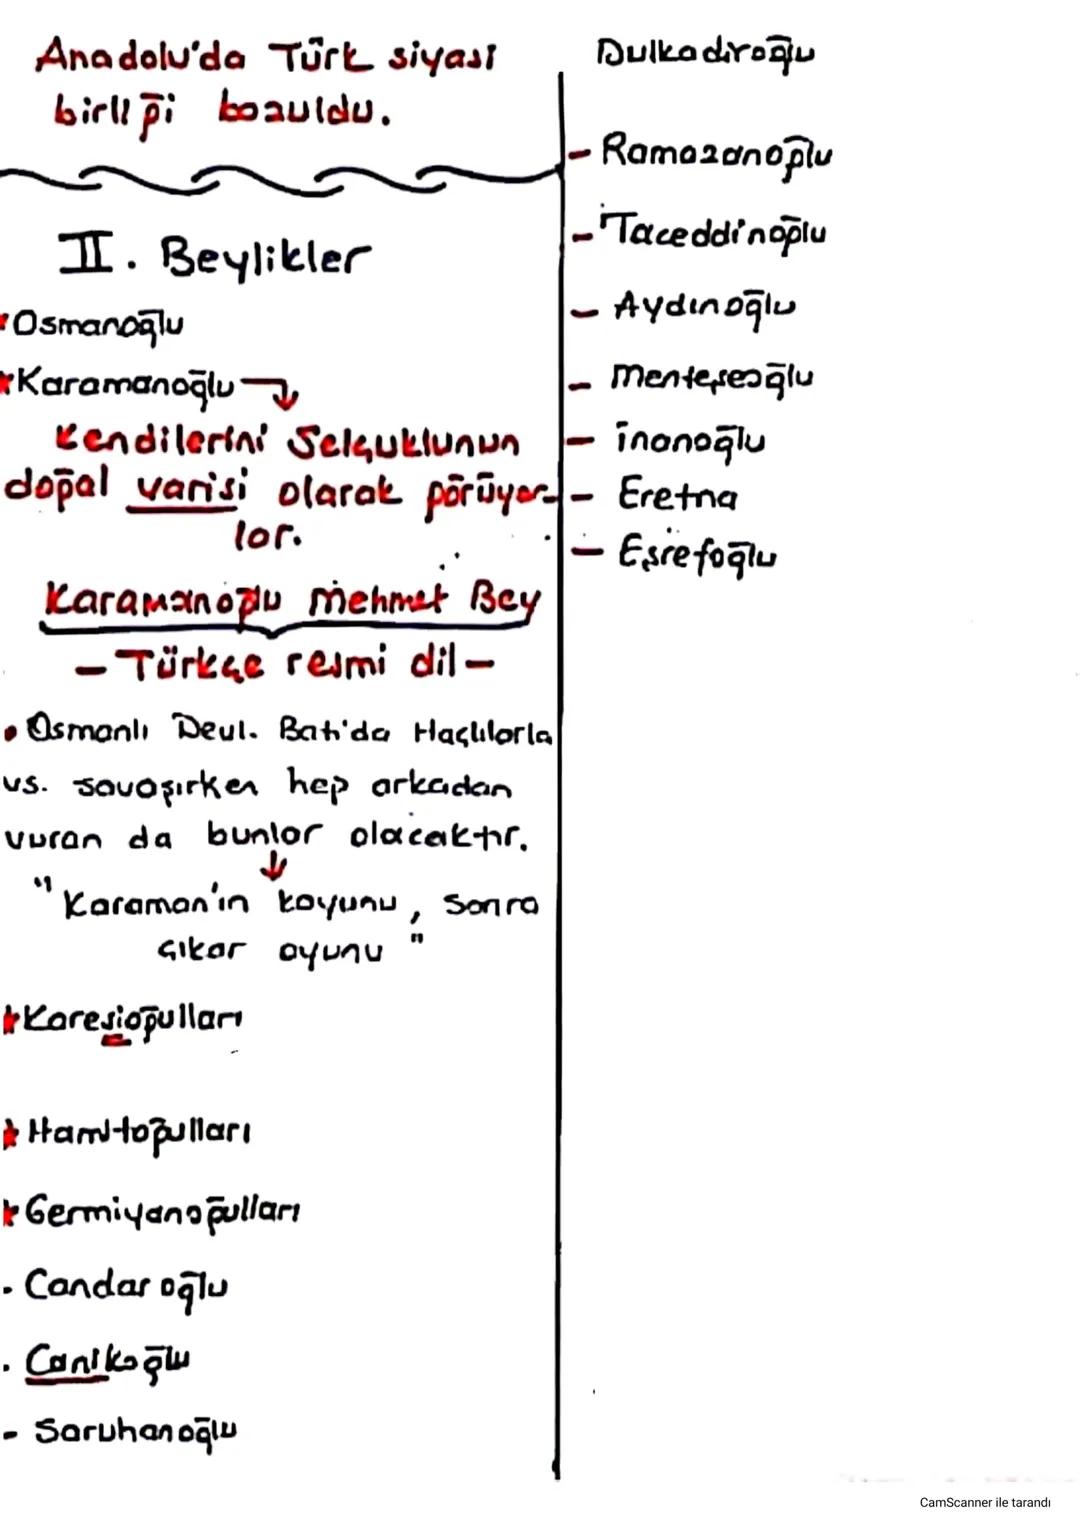 Anadolu'da Türk siyasi
birliği bozuldu.
II. Beylikler
*Osmanoğlu
*Karamanoğlu →
Kendilerini Selçuklunun
doğal varisi olarak görüyor-
lar.
Karamanoğlu Mehmet Bey
- Türkçe resmi dil -
• Osmanlı Devl. Batı'da Haçlılarla
vs. savaşırken hep arkadan
vuran da bunlar olacaktır.
↓
"Karaman'ın koyunu, sonra
çıkar oyunu"
*Karesioğulları
*Hamitoğulları
*Germiyanoğulları
- Candaroğlu
- Canikoğlu
- Saruhanoğlu
Dulkadiroğlu
- Ramazanoğlu
- Taceddinoğlu
- Aydınoğlu
- Menteşeoğlu
- İnanoğlu
- Eretna
- Eşrefoğlu
CamScanner ile tarandı